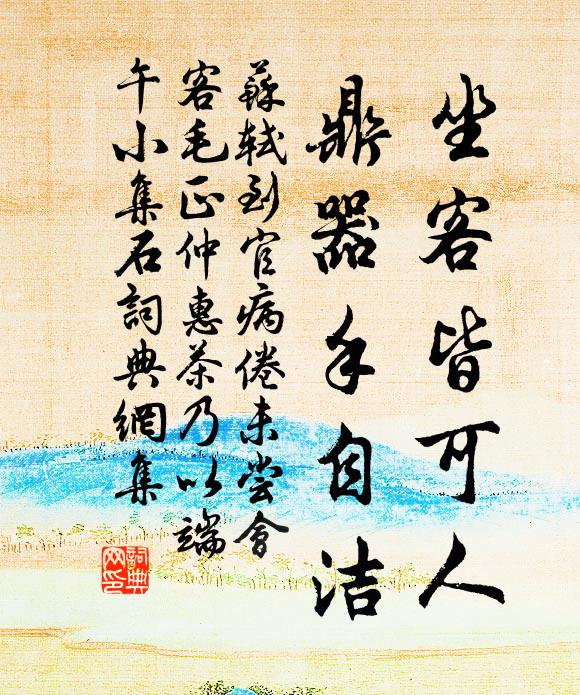 坐客皆可人
鼎器手自洁
蘇軾到官病倦未尝會
客毛正仲惠茶乃以端
午小集石詞典網集
詞典
网印